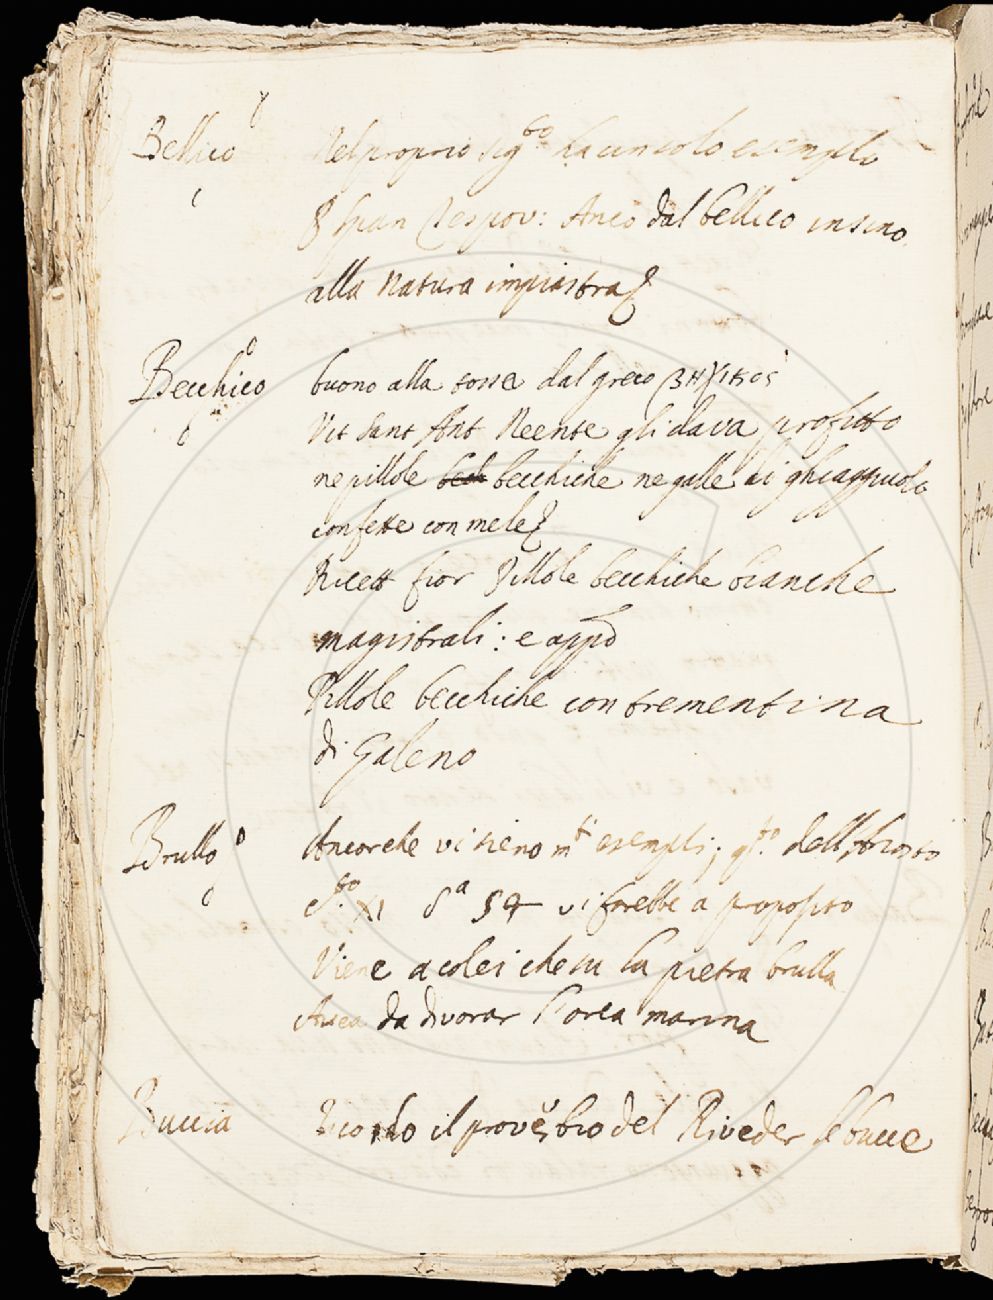 Bellico Nel proprio sig.to ha un solo esempio
span Respov: Anco dal bellico insino
alla natura impiastra
Becchico buono alla tosse dal greco βηχικος
Vit Sant Ant Neente gli dava profitto
ne pillole bech becchiche ne galle di ghiaggiuolo
confette con mele
Ricett fior Pillole becchiche bianche
magistrali: e appo
Pillole becchiche con trementina
di Galeno
Brullo Ancorche vi sieno mti esempli; qto. dell Ariosto
cto. XI Sa 54 vi sarebbe a proposito
Viene a colei che su la pietra brulla
Avea da divorar l'orca marina
Buccia Ricordo il proverbio del Riveder le bucce